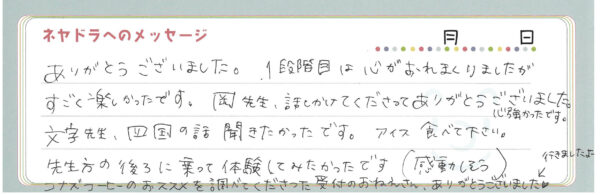 ネヤドラへのメッセージ
月 日
ありがとうございました。1段階目は心がおれまくりましたが
すごく楽しかったです。岡先生、話しかけてくださってありがとうございました。
心強かったです。
文字先生、四国の話聞きたかったです。アイス食べて下さい。
先生方の後ろに乗って体験してみたかったです(感動しそう)
行きましたよー
コナズコーヒーのおススメを調べてくださった受付のおねえさん、ありがとうございました